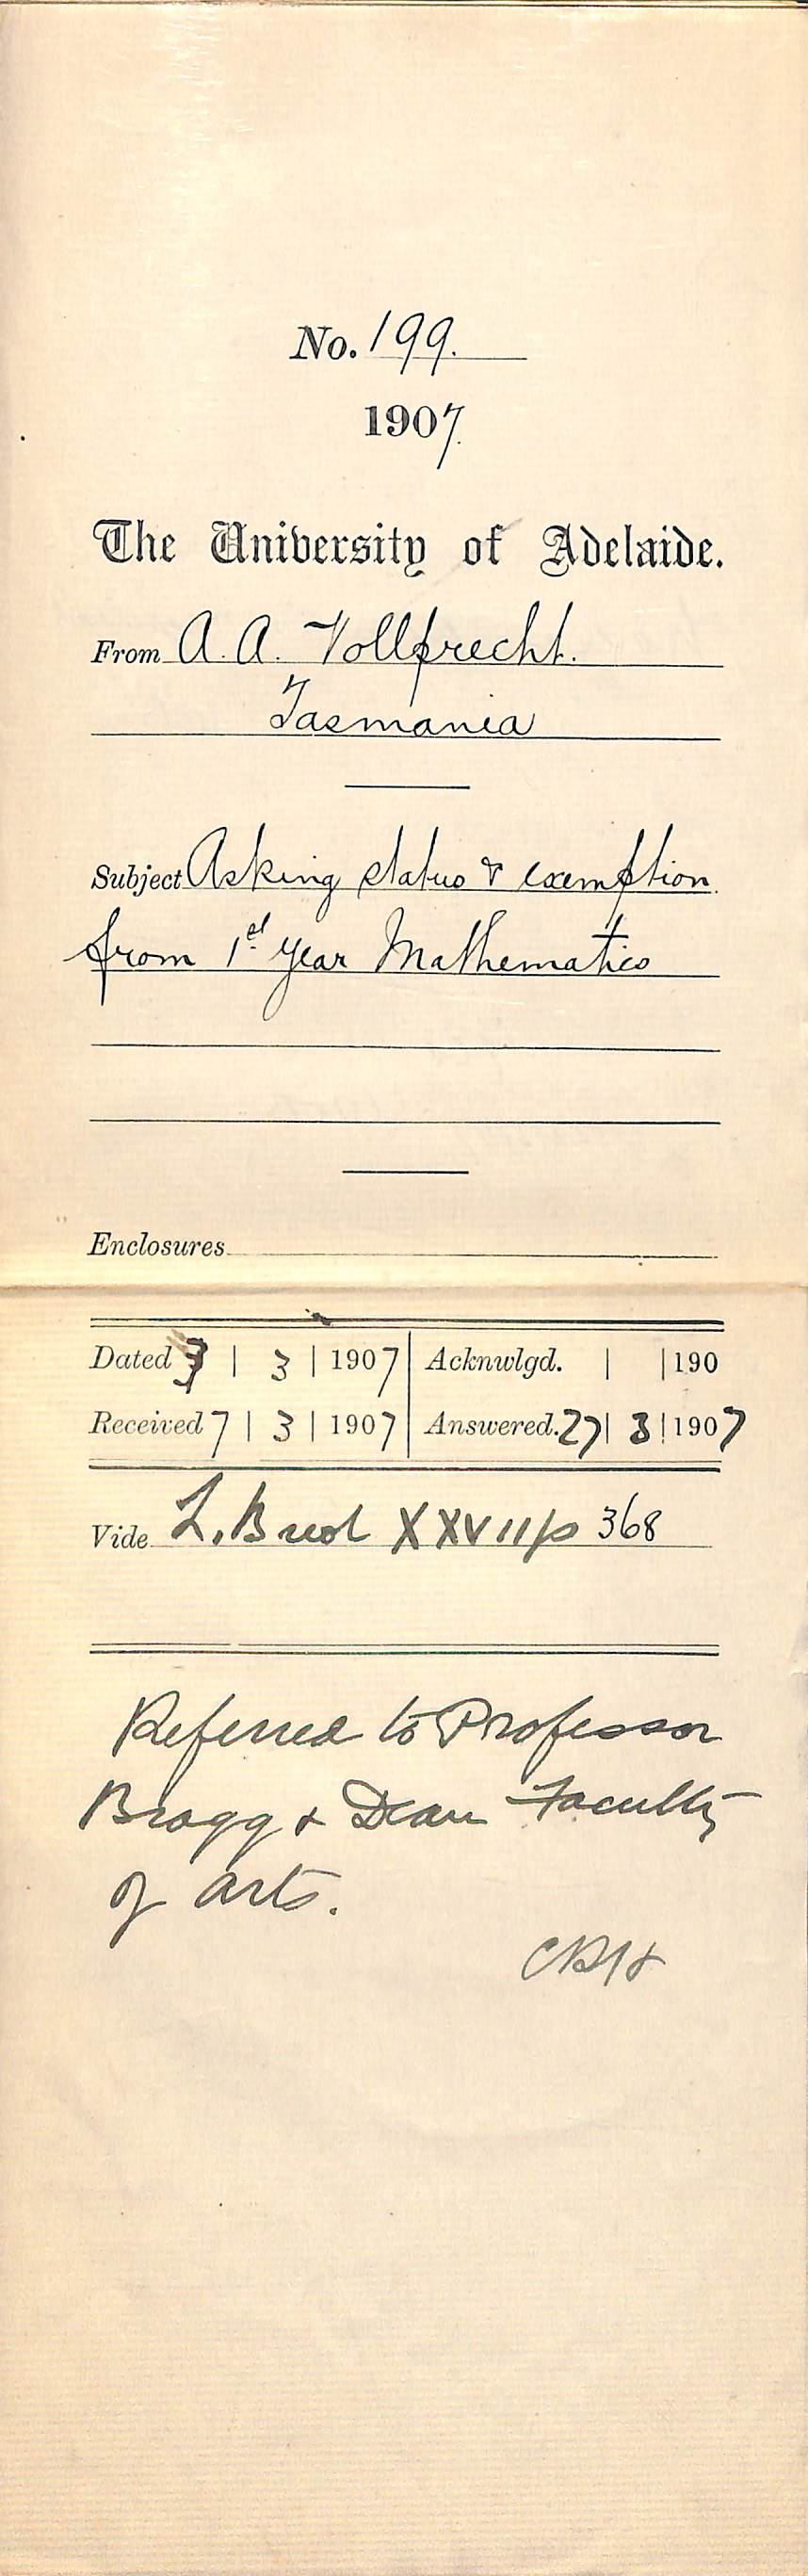 No. 199.
1907.
The University of Adelaide.
From A. A. Vollprecht.
Tasmania
Subject Asking status & exemption
from 1st year Mathematics
Enclosures
Dated 3 | 3 | 1907 Acknwlgd. | | 190
Received 7 | 3 | 1907 Answered. 27 | 3 | 1907
Vide L. B XXVII p 368
Referred to Professor
Bragg & Dean Faculty
of Arts.